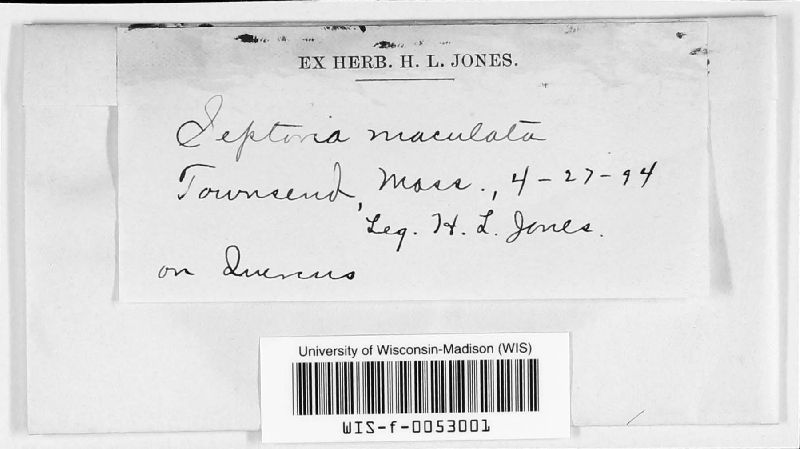 EX HERB. H. L. JONES.
Septoria maculata
Townsend, Mass., 4-27-94
Leg. H. L. Jones.
on Quercus
University of Wisconsin-Madison (WIS)
WIS-f-0053001